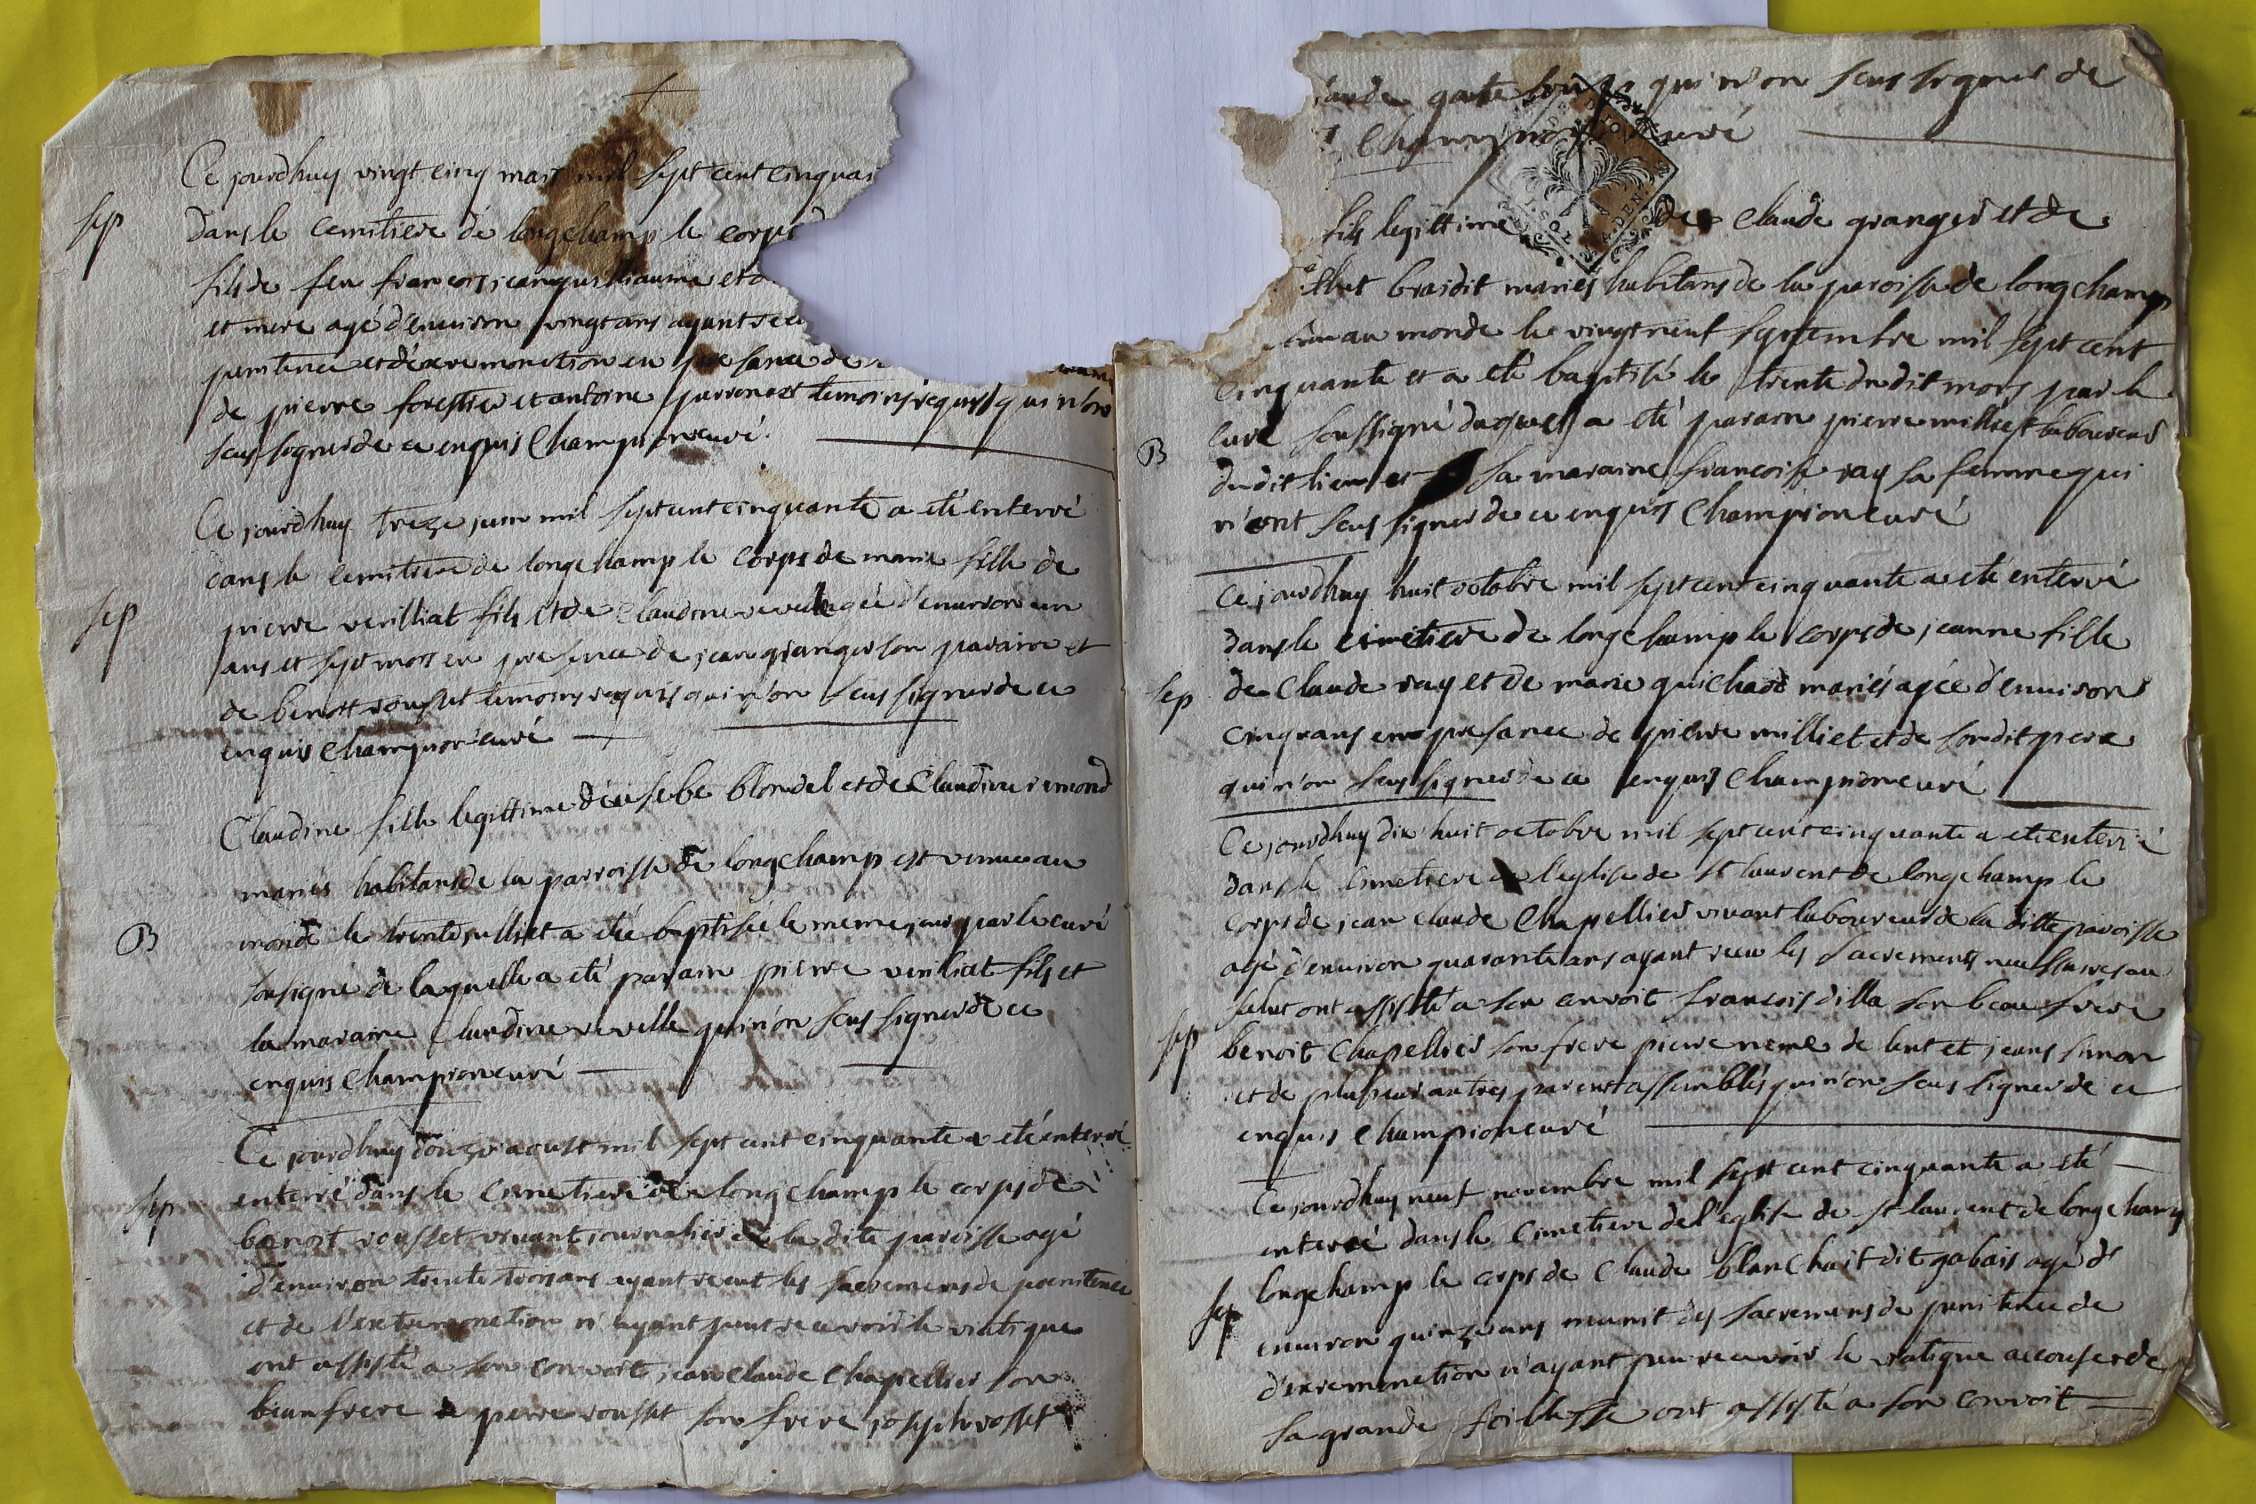 Ce jourdhuy vingt cinq mars mil sept cent cinquan
sep
dans le cemitiere de longchamp le corps d
fils de feu francois jeanguillaume et d
et mere agé d'environ vingt ans ayant
penitence et d'extremonction en presance de
de pierre forestier et antoine temoins requis qui n'on
seus signer de ce enquis Champion curé.
Ce jourdhuy treze juin mil sept cent cinquante a eté enterré
dans le cemitiere de longchamp le corps de marie fille de
sep
pierre verilliat fils et de Claudine revelle agée d'environ un
ans et sept mois en presence de jean granger son paraire et
de benoit rousset temoins requis qui n'on seus signer de ce
enquis Champion curé
Claudine fille legittime d'eusebe blondel et de Claudine remond
mariés habitans de la parroisse de longchamp est venue au
B
monde le trente juillet a eté baptisée le meme jour par le curé
sousigné de laquelle a eté parain pierre veriliat fils et
la maraine Claudine revelle qui n'on seus signer de ce
enquis Champion curé
Ce jourdhuy douze aoust mil sept cent cinquante a eté enterré
sep
enterré dans le cimetiere de longchamp le corps de
benoit rousset vivant journalier de la dite paroisse agé
d'environ trente trois ans ayant receut les sacremens de poenitence
et de l'extremonction n'ayant peut recevoir le viatique
ont assisté a son convoit jean Claude Chapellier son
beaufrere de pierre rousset son frere joseph rosset
aude qui n'on seus signer de
Champion curé
fils legittime de Claude granger et de
braidit mariés habitans de la paroisse de longchamp
au monde le vingt neuf septembre mil sept cent
cinquante et a eté baptisé le trente du dit mois par le
curé soussigné duquel a eté parain pierre milliet laboureur
B
du dit lieu et sa maraine francoise ray sa femme qui
n'ont seus signer de ce enquis Champion curé
Ce jourdhuy huit octobre mil sept cent cinquante a eté enterré
dans le cimetiere de longchamp le corps de jeanne fille
sep
de Claude ray et de marie quichard mariés agée d'environ
cinq ans en presance de pierre milliet et de son dit pere
qui n'on seus signer de ce enquis Champion curé
Ce jourdhuy dix huit octobre mil sept cent cinquante a eté enterré
dans le cimetiere de l'eglise de st laurent de longchamp le
corps de jean Claude Chapellier vivant laboureur de la ditte paroisse
agé d'environ quarante ans ayant receu les sacrements necessaires au
salut ont assisté a son convoit francois dilla son beau frere
sep
benoit Chapellier son frere pierre neme de lent et jean simon
et de plusieur autres parent assemblés qui n'on seus signer de ce
enquis Champion curé
Ce jourdhuy neuf novembre mil sept cent cinquante a eté
enterré dans le Cimetiere de l'eglise de st laurent de longchamp
sep
longchamp le corps de Claude blanchait dit gabais agé d'
environ quinze ans meunit des sacremens de penitence de
d'extremonction n'ayant peu recevoir le viatique a couse de
sa grande foiblesse ont assisté a son convoit